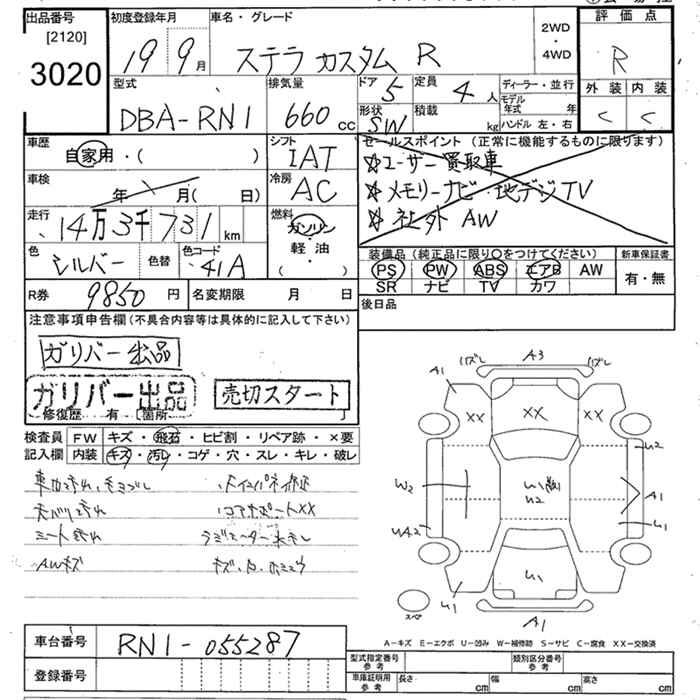 出品番号 初度登録年月 車名・グレード 評価点
[2120]
3020
19 9月 ステラ カスタム R
2WD
・
4WD
R
型式 排気量 ドア 5 定員 4人 ディーラー・並行 外装 内装
DBA-RN1 660 cc 形状 SW 積載 kg モデル年式 年 C C
ハンドル 左・右
車歴 シフト セールスポイント (正常に機能するものに限ります)
自家用・( ) IAT ☆ユーザー買取車
車検 冷房 ☆メモリーナビ・地デジTV
年 月( 日) AC ☆社外 AW
走行 燃料
14万3千731km ガソリン
軽・油
・( )
色 シルバー 色替 色コード 41A
装備品 (純正品に限り○をつけてください) 新車保証書
PS PW ABS エアB AW 有・無
SR ナビ TV カワ
R券 9850円 名変期限 月 日 後日品
注意事項申告欄 (不具合内容等は具体的に記入して下さい)
ガリバー出品
ガリバー出品 売切スタート
修復歴 有 [箇所 ]
検査員 FW キズ・飛石・ヒビ割・リペア跡・×要
記入欄 内装 キズ・汚レ・コゲ・穴・スレ・キレ・破レ
コアサポートXX
AWキズ
A3
A1
XX XX XX
U2
W2
U1
U2
A1
UA2 U1
U1 U1
A1
スペア
A-キズ E-エクボ U-凹み W-補修跡 S-サビ C-腐食 XX-交換済
車台番号 RN1-055287
登録番号
型式指定番号 参考 類別区分番号 参考
車庫証明用 参考 長さ cm 幅 cm 高さ cm